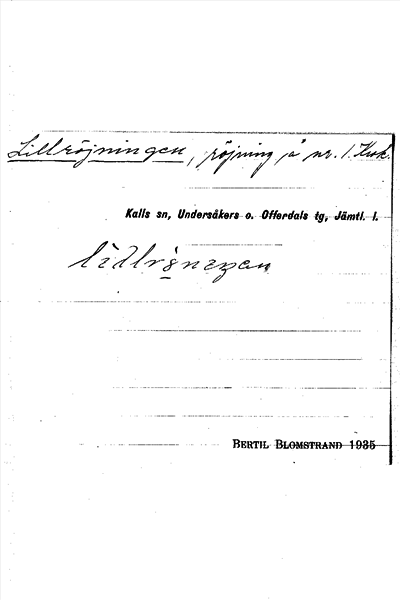 Lillröjningen, röjning å nr. 1
Kalls sn, Undersåkers o. Offerdals tg, Jämtl. l.
BERTIL BLOMSTRAND 1935